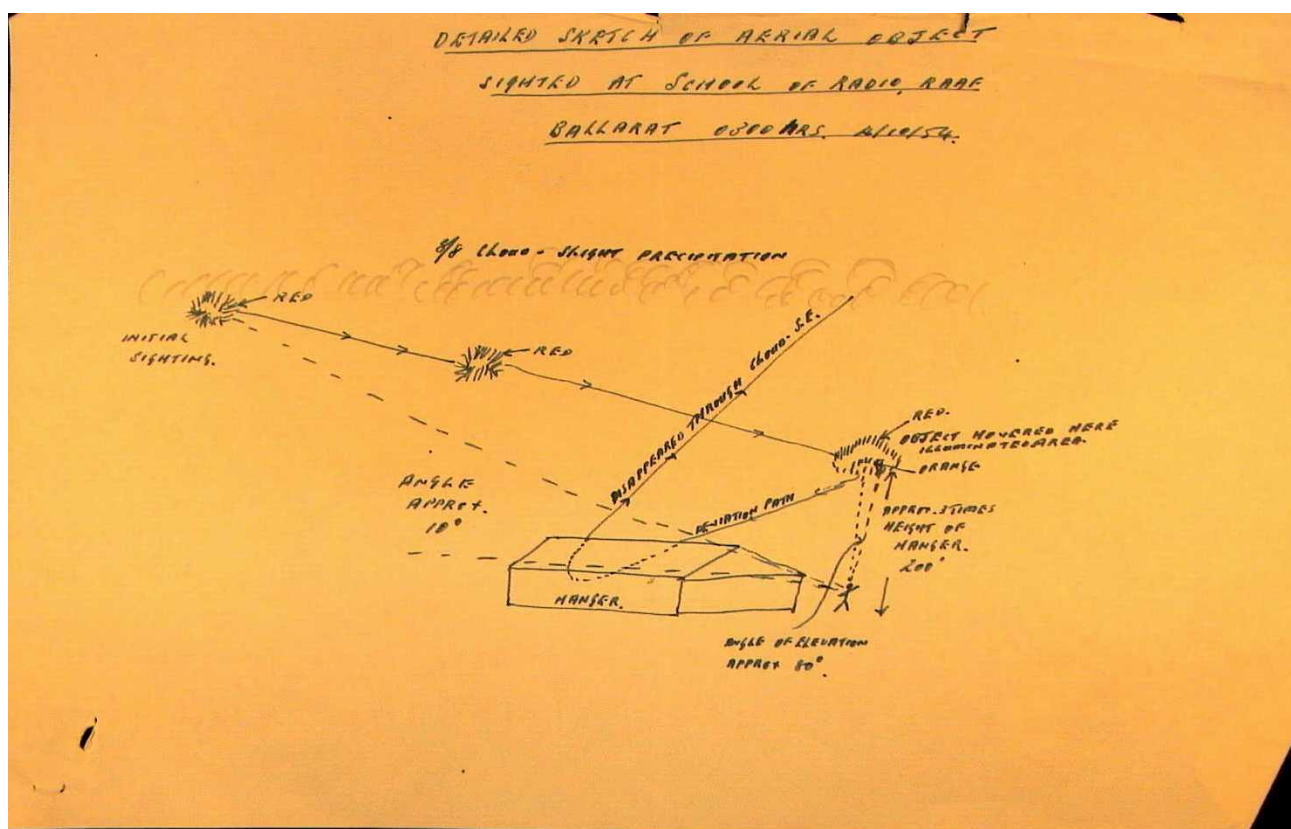 DETAILED SKETCH OF AERIAL OBJECT
SIGHTED AT SCHOOL OF RADIO, RAAF
BALLARAT 0300 HRS.
8/8 CLOUD - SLIGHT PRECIPITATION
RED
INITIAL
SIGHTING.
RED
DISAPPEARED THROUGH CLOUD - S.E.
RED.
OBJECT HOVERED HERE
ILLUMINATED AREA.
ORANGE
DEVIATION PATH
ANGLE
APPROX.
10°
APPROX. 3 TIMES
HEIGHT OF
HANGER.
200°
HANGER.
ANGLE OF ELEVATION
APPROX 80°.